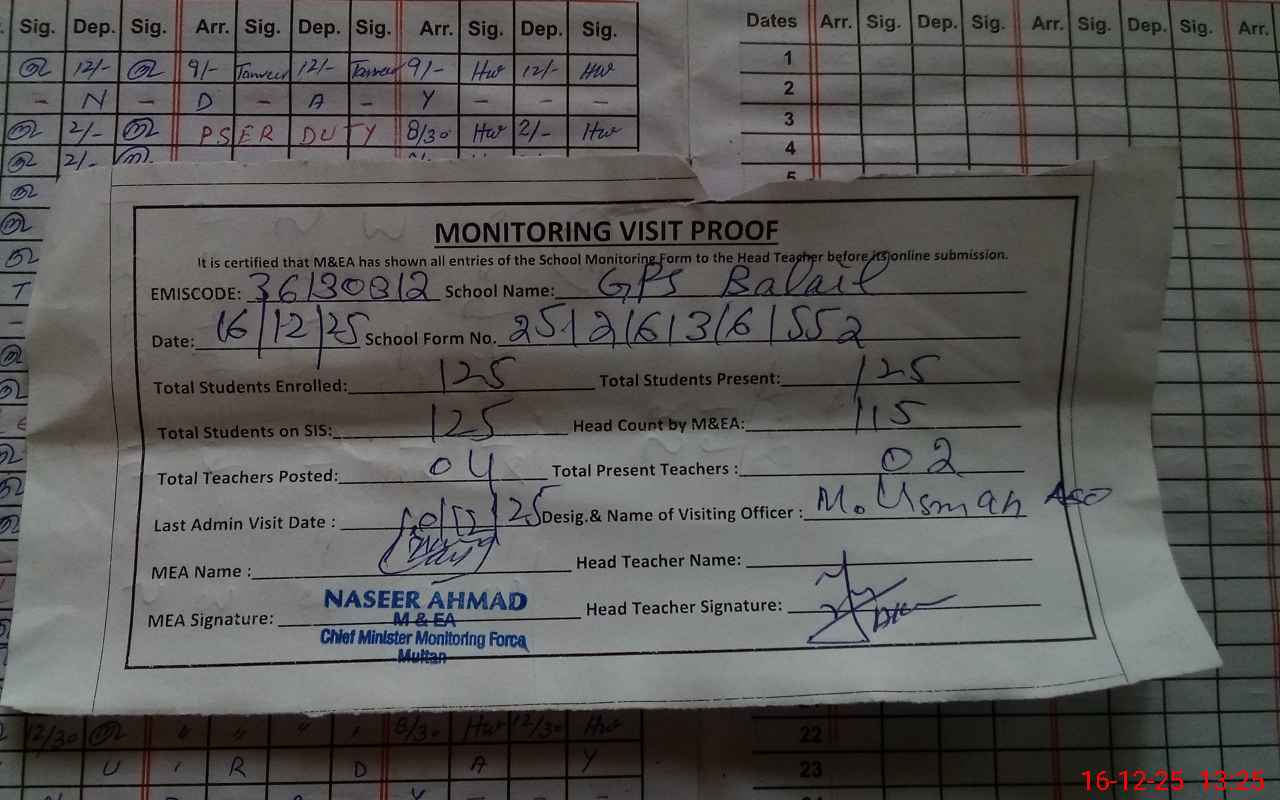 Sig. Dep. Sig. Arr. Sig. Dep. Sig. Arr. Sig. Dep. Sig.
12/- 9/- Tanveer 12/- Tanveer 9/- Hw 12/- Hw
- N - D - A - Y - - -
2/- PSER DUTY 8/30 Hw 2/- Hw
2/-
Dates Arr. Sig. Dep. Sig. Arr. Sig. Dep. Sig. Arr.
1
2
3
4
5
MONITORING VISIT PROOF
It is certified that M&EA has shown all entries of the School Monitoring Form to the Head Teacher before its online submission.
EMISCODE: 36130312 School Name: GPS Balail
Date: 16/12/25 School Form No. 25121613161552
Total Students Enrolled: 125 Total Students Present: 125
Total Students on SIS: 125 Head Count by M&EA: 115
Total Teachers Posted: 04 Total Present Teachers : 02
Last Admin Visit Date : 10/12/25 Desig.& Name of Visiting Officer : M. Usman AEO
MEA Name : Head Teacher Name:
MEA Signature: Head Teacher Signature:
NASEER AHMAD
M & EA
Chief Minister Monitoring Force
Multan
12/30 8/30 Hw 12/30 Hw
U I R D A Y
22
23
16-12-25 13:25